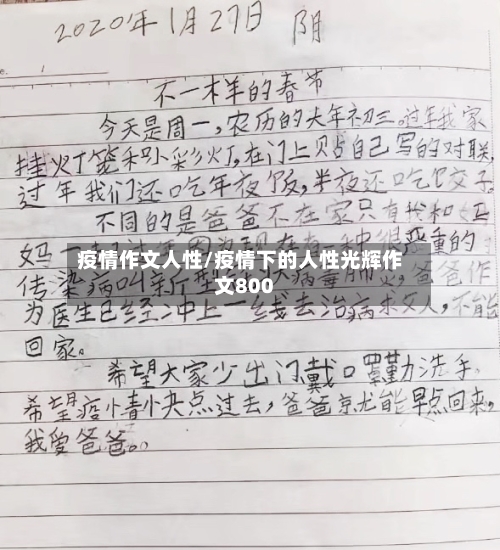 2020年1月27日 阴
不一样的春节
今天是周一,农历的大年初三。过年我家
挂灯笼和小彩灯,在门上贴自己写的对联,
过年我们还吃年夜饭,半夜还吃饺子
不同的是爸爸不在家只有我和
妈 有一种很严重的
疫情作文人性/疫情下的人性光辉作
文800
传染病叫 爸爸作
为医生已经冲上一线去治病救人,不能
回家。
希望大家少出门戴口罩勤洗手,
希望疫情快点过去,爸爸就能早点回来,
我爱爸爸。